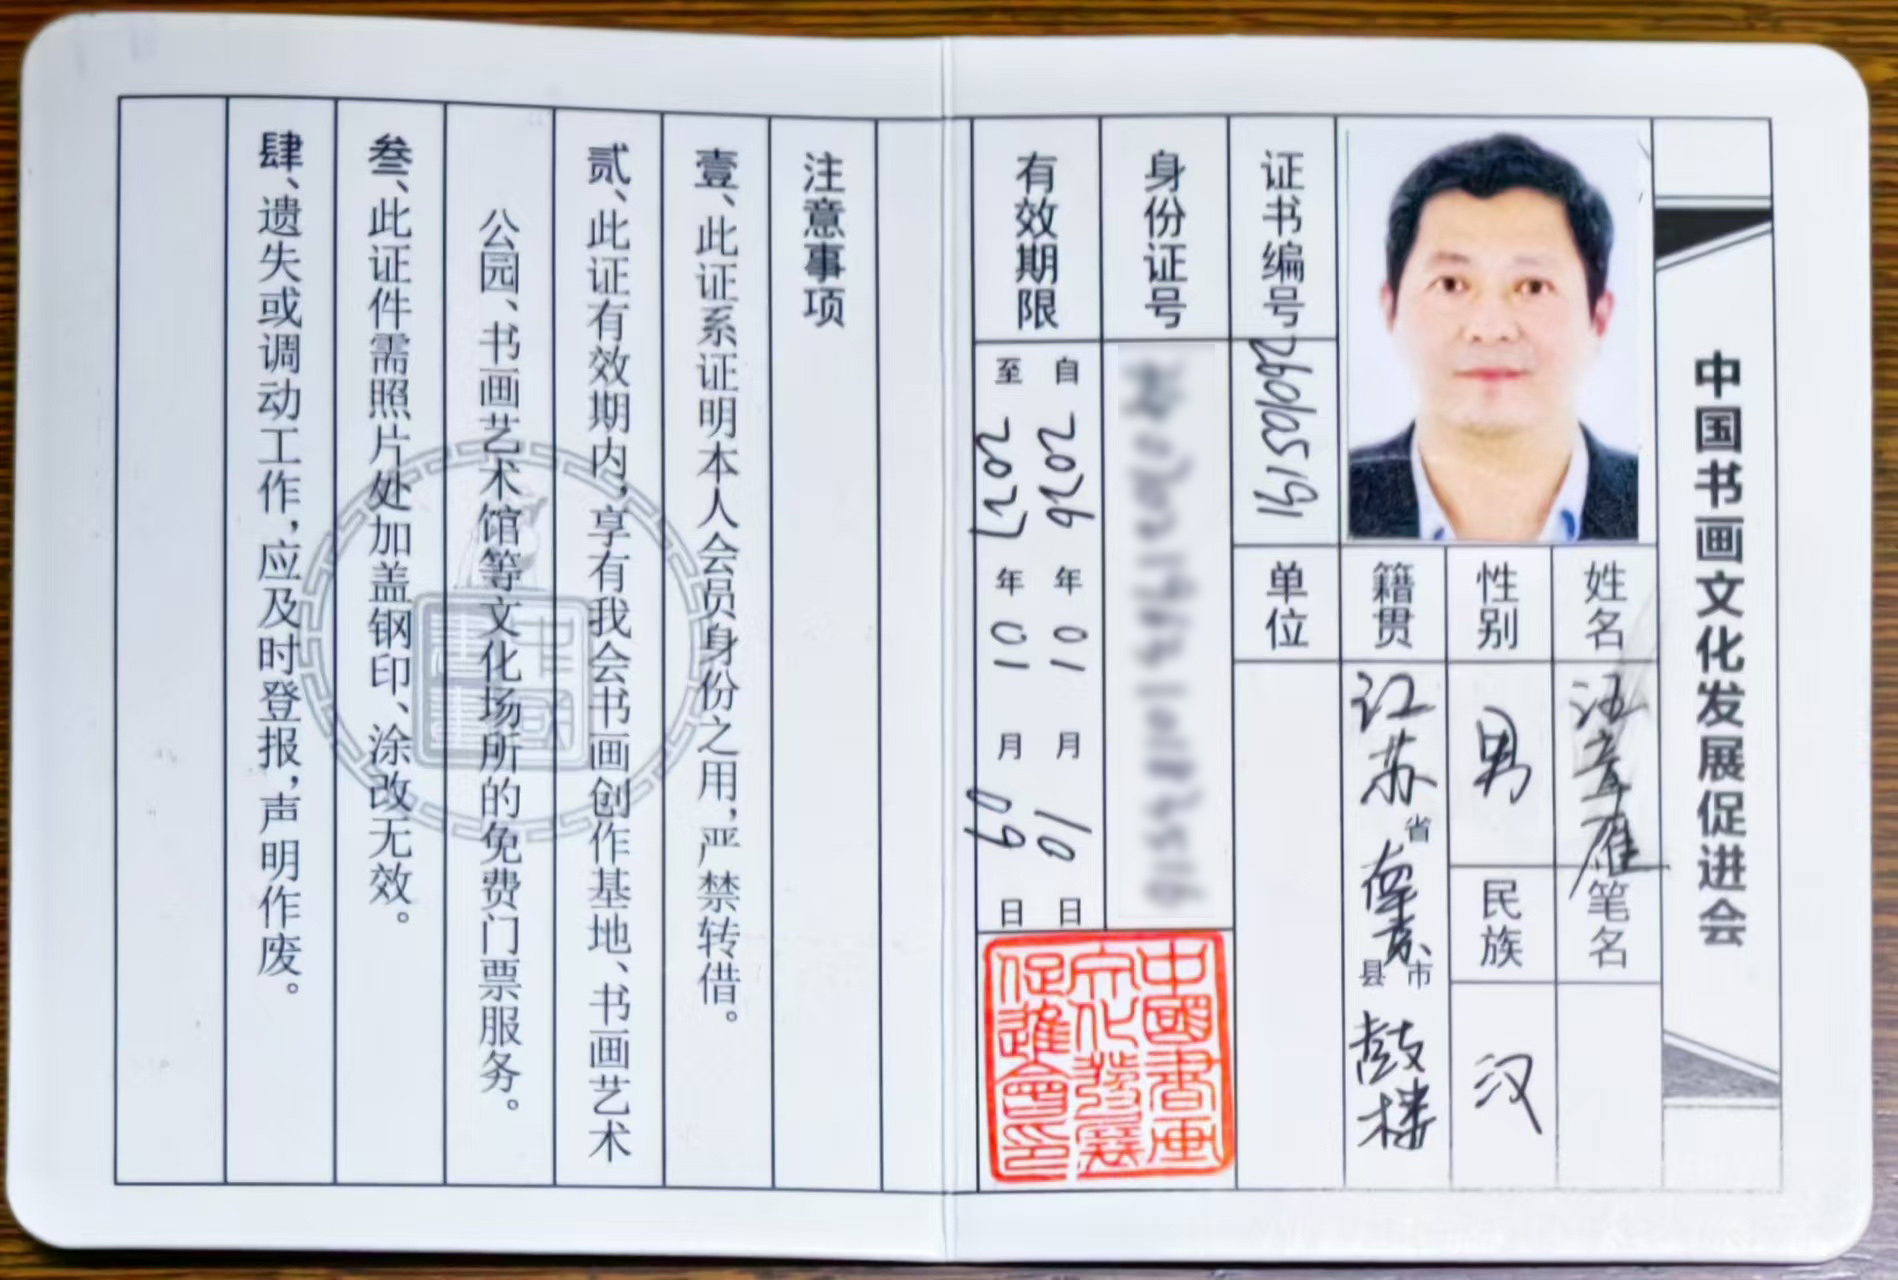 中国书画文化发展促进会
姓名 汪章雁 笔名
性别 男 民族 汉
籍贯 江苏省 南京市 鼓楼县
证书编号 260105191
单位
身份证号
有效期限
自2026年01月10日
至2027年01月09日
中國書画
文化發展
促進會印
注意事项
壹、此证系证明本人会员身份之用,严禁转借。
贰、此证有效期内,享有我会书画创作基地、书画艺术
公园、书画艺术馆等文化场所的免费门票服务。
叁、此证件需照片处加盖钢印、涂改无效。
肆、遗失或调动工作,应及时登报,声明作废。
中國
書畫